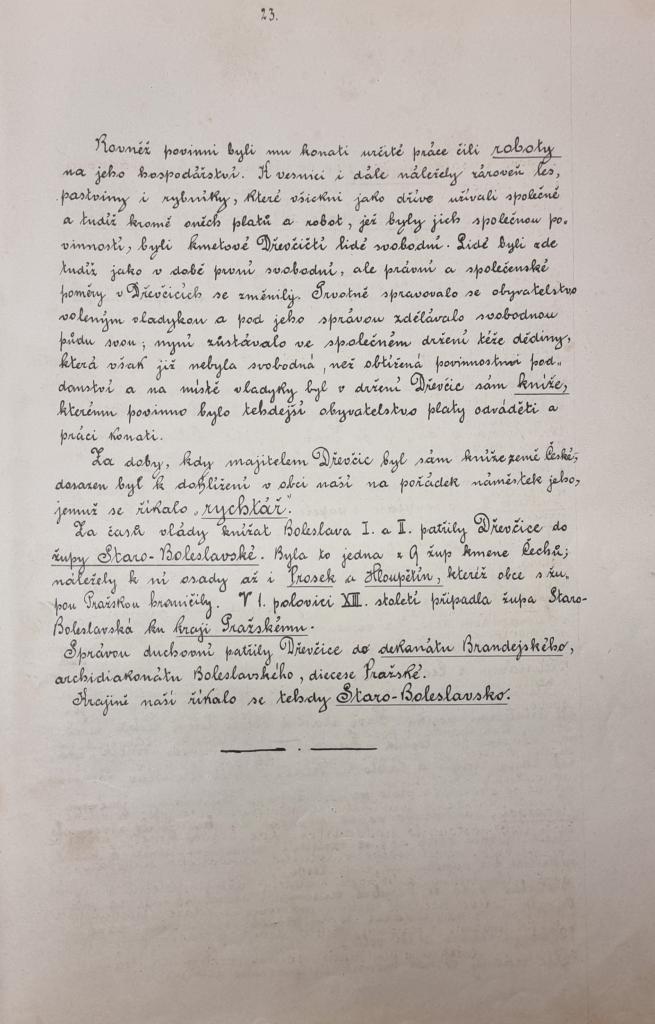 23.
Rovněž povinni byli mu konati určité práce čili roboty
na jeho hospodářství. K vesnici i dále náležely zároveň les,
pastviny i rybníky, které všickni jako dříve užívali společně
a tudíž kromě oněch platů a robot, jež byly jich společnou po-
vinností, byli kmetové Dřevčičtí lidé svobodní. Lidé byli zde
tudíž jako v době první svobodní, ale právní a společenské
poměry v Dřevčicích se změnily. Prvotně spravovalo se obyvatelstvo
voleným vladykou a pod jeho správou zdělávalo svobodnou
půdu svou; nyní zůstávalo ve společném držení téže dědiny,
která však již nebyla svobodná, než obtížená povinnostmi pod-
danství a na místě vladyky byl v držení Dřevčic sám kníže,
kterému povinno bylo tehdejší obyvatelstvo platy odváděti a
práci konati.
Za doby, kdy majitelem Dřevčic byl sám kníže země České,
dosazen byl k dohlížení v obci naší na pořádek náměstek jeho,
jemuž se říkalo „rychtář“.
Za časů vlády knížat Boleslava I. a II. patřily Dřevčice do
župy Staro-Boleslavské. Byla to jedna z 9 žup kmene Čechů;
náležely k ní osady až i Prosek a Hloupětín, kteréž obce s žu-
pou Pražskou hraničily. V 1. polovici XIII. století připadla župa Staro-
Boleslavská ku kraji Pražskému.
Správou duchovní patřily Dřevčice do dekanátu Brandejského,
archidiakonátu Boleslavského, diecese Pražské.
Krajině naší říkalo se tehdy Staro-Boleslavsko.